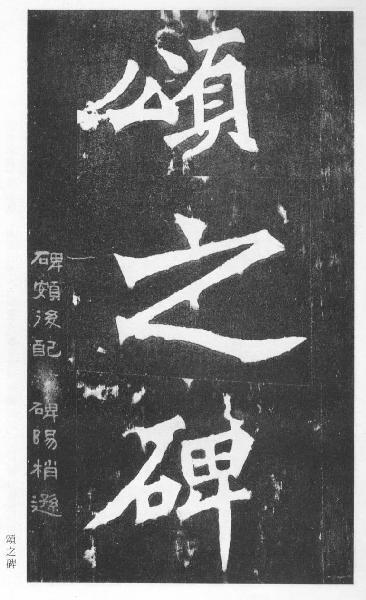 頌之碑
碑額後配 碑陽稍遜
頌之碑